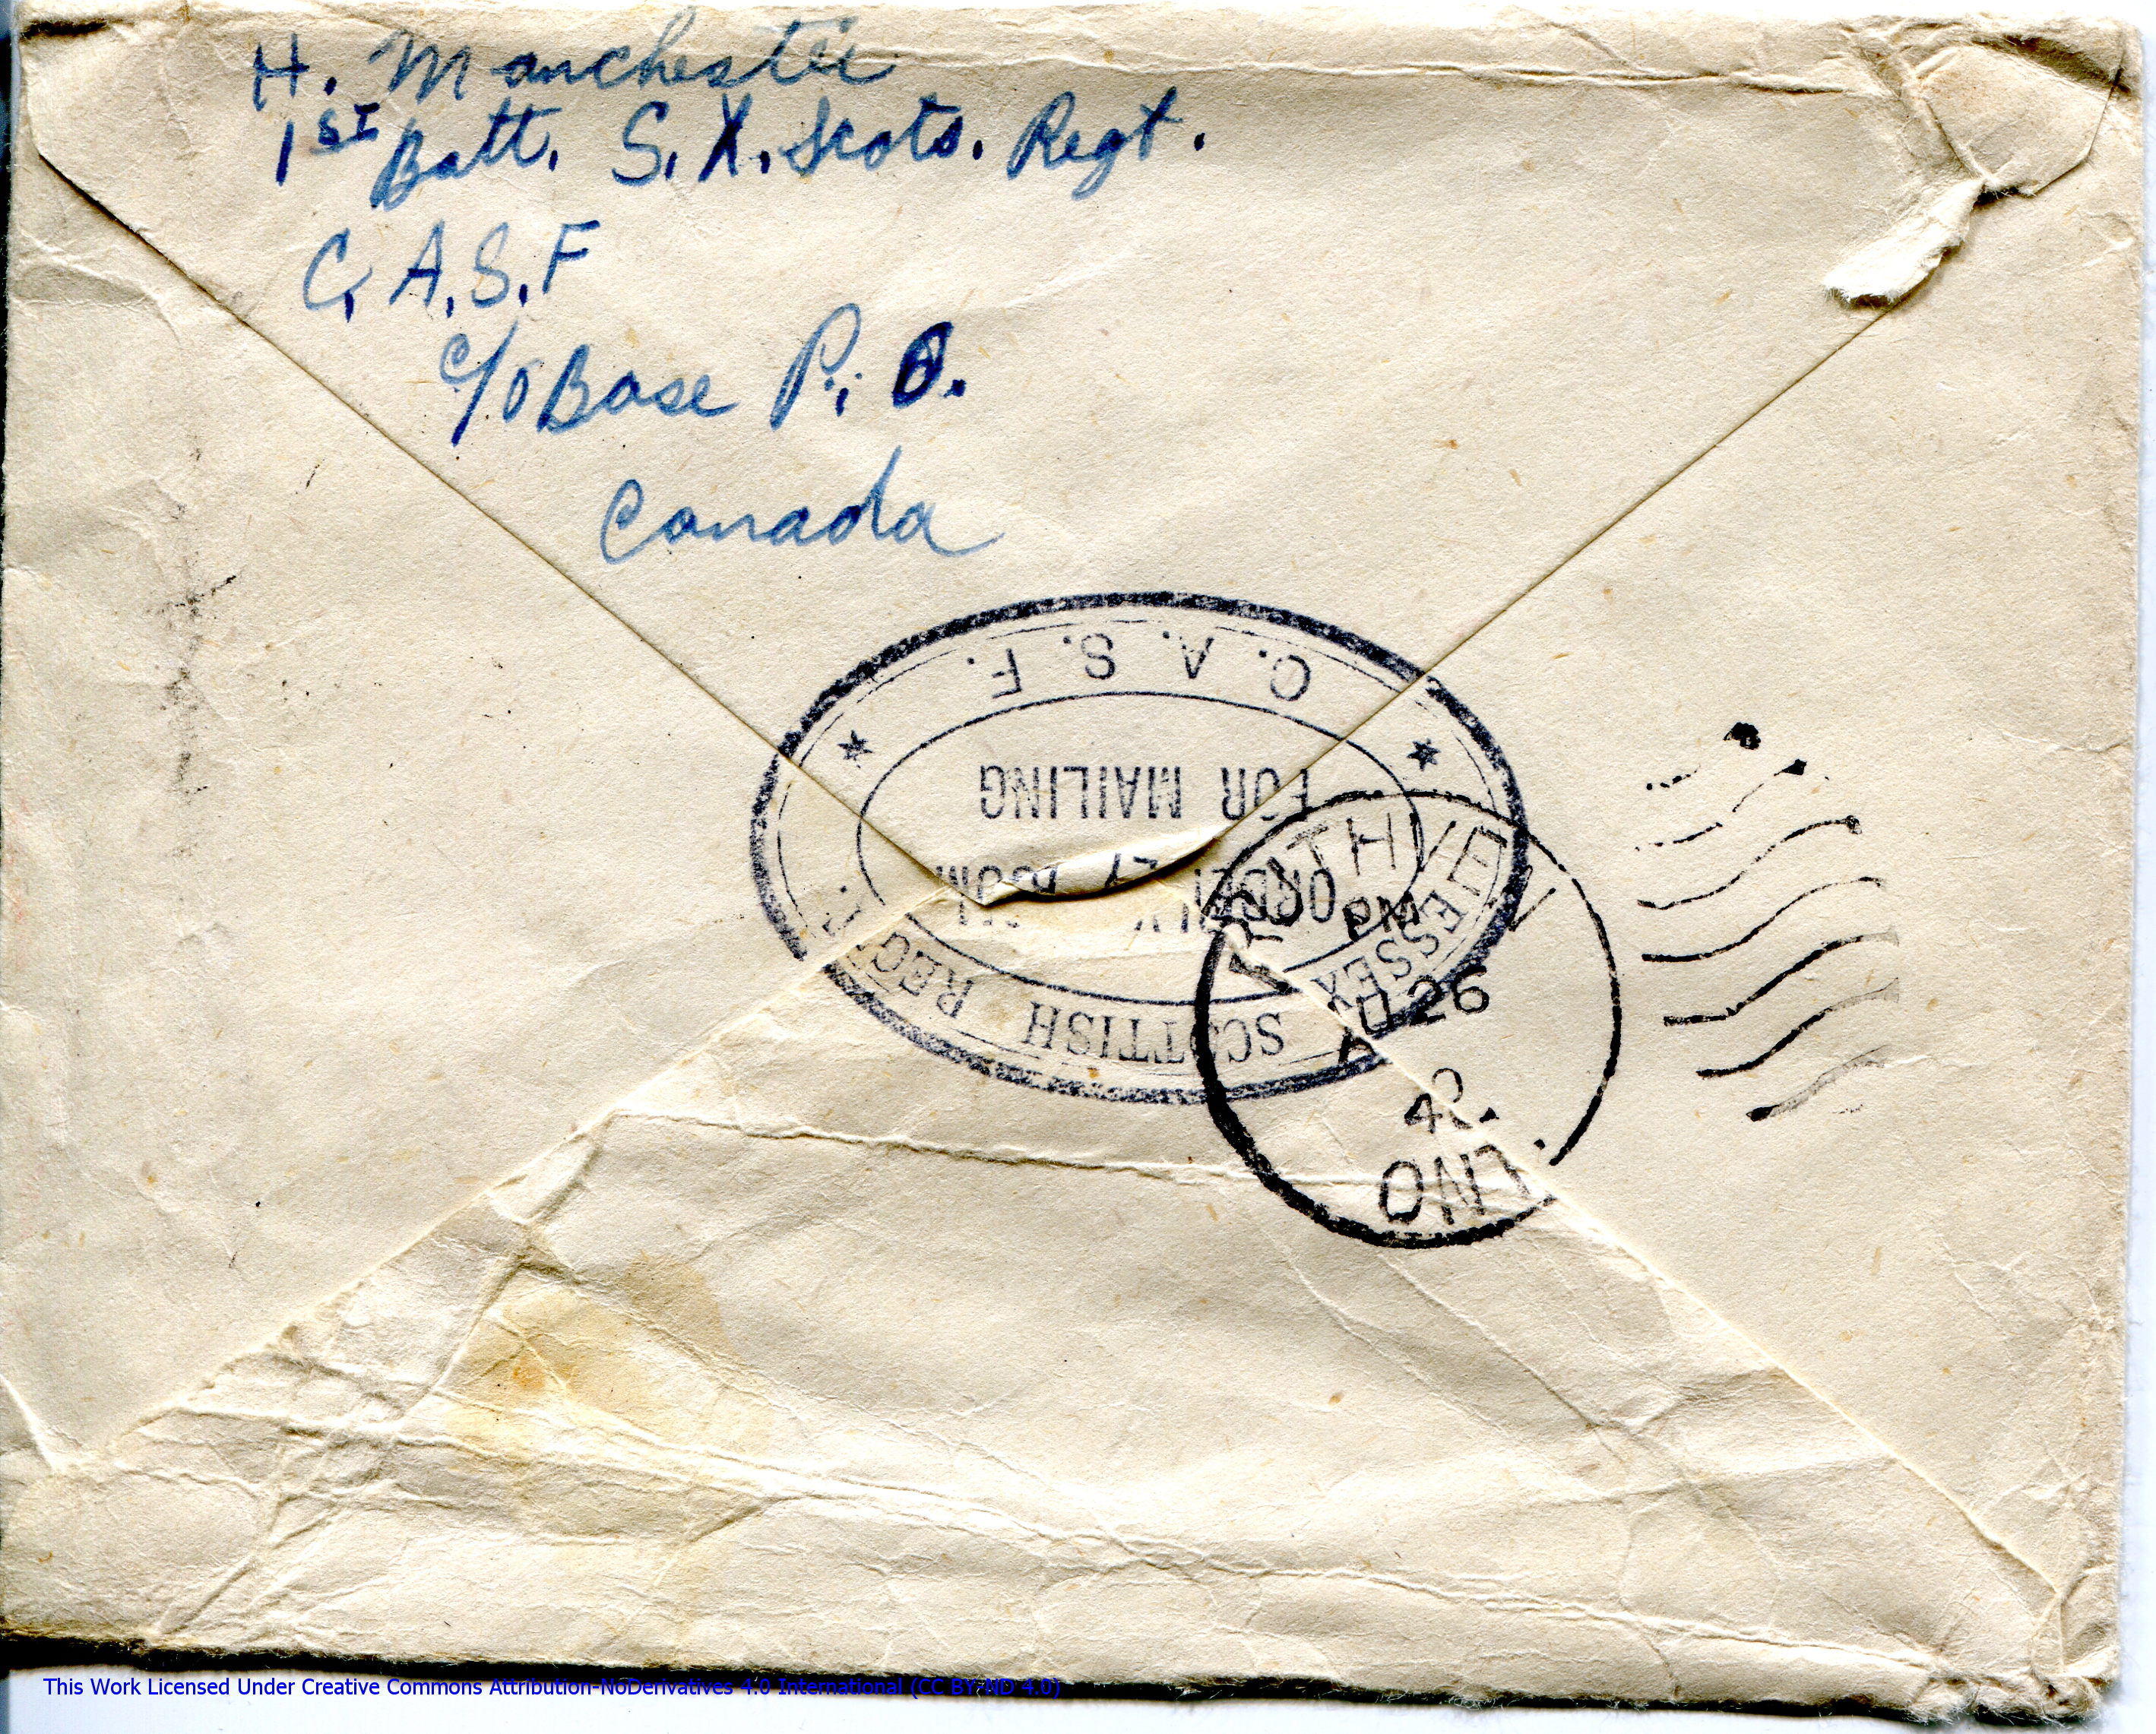 H. Manchester
1ST Batt. S.X. Scots. Regt.
C.A.S.F
c/o Base P.O.
Canada
C. A. S. F.
ESSEX SCOTTISH REGT.
ORDERLY ROOM
FOR MAILING
RUTHVEN
PM
AU 26
42
ONT.
This Work Licensed Under Creative Commons Attribution-NoDerivatives 4.0 International (CC BY-ND 4.0)